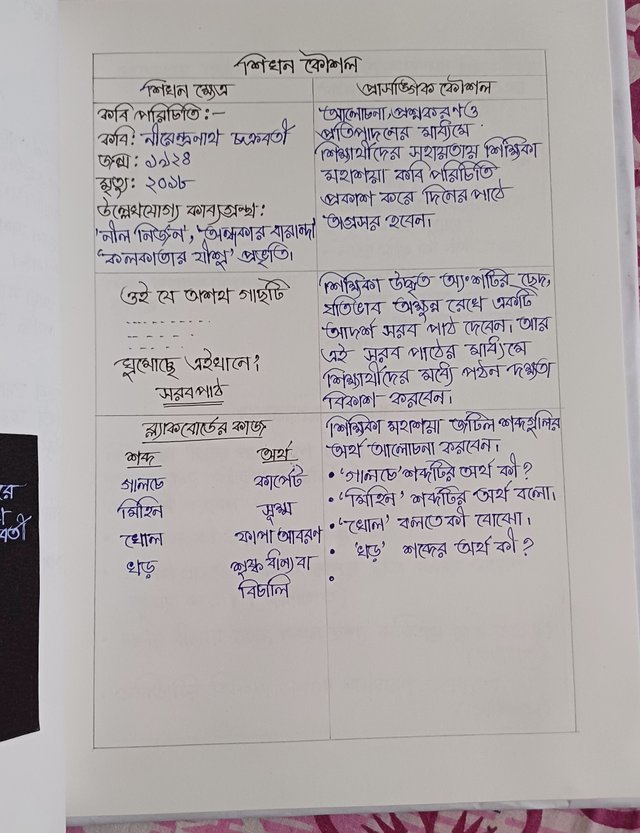 শিখন কৌশল
শিখন ক্ষেত্র
প্রাসঙ্গিক কৌশল
কবি পরিচিতি:-
কবি: নীরেন্দ্রনাথ চক্রবর্তী
জন্ম: ১৯২৪
মৃত্যু: ২০১৮
উল্লেখযোগ্য কাব্যগ্রন্থ:
'নীল নির্জন', 'অন্ধকার বারান্দা'
'কলকাতার যীশু' প্রভৃতি।
আলোচনা, প্রশ্নকরণ ও
প্রতিপাদনের মাধ্যমে
শিক্ষার্থীদের সহায়তায় শিক্ষিকা
মহাশয়া কবি পরিচিতি
প্রকাশ করে দিনের পাঠে
অগ্রসর হবেন।
ওই যে অশথ গাছটি
---------
---------
ঘুমোচ্ছে এইখানে।
সরবপাঠ
শিক্ষিকা উদ্ধৃত অংশটির ছেদ,
যতিভাব অক্ষুন্ন রেখে একটি
আদর্শ সরব পাঠ দেবেন। আর
এই সরব পাঠের মাধ্যমে
শিক্ষার্থীদের মধ্যে পঠন দক্ষতা
বিকাশ করবেন।
ব্ল্যাকবোর্ডের কাজ
শব্দ অর্থ
গালচে কার্পেট
মিহিন সূক্ষ্ম
খোল ফাপা আবরণ
খড় শুষ্ক ধান্য বা
বিচালি
শিক্ষিকা মহাশয়া জটিল শব্দগুলির
অর্থ আলোচনা করবেন।
• 'গালচে' শব্দটির অর্থ কী?
• 'মিহিন' শব্দটির অর্থ বলো।
• 'খোল' বলতে কী বোঝো।
• 'খড়' শব্দের অর্থ কী?
•